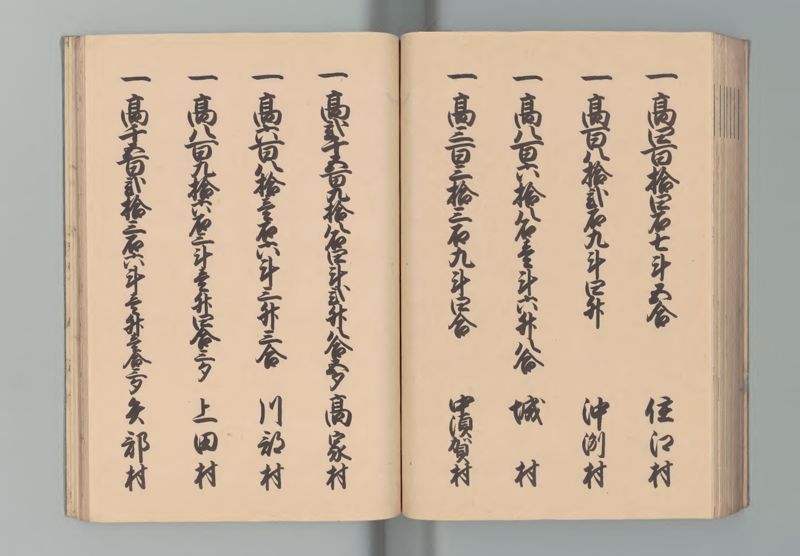 一 高四百拾四石七斗五合 住江村
一 高百八拾弐石九斗四升 沖洲村
一 高八百六拾八石壱斗六升八合 城 村
一 高三百三拾三石九斗四合 中須賀村
一 高弐千五百九拾八石四斗弐升八合五夕 高家村
一 高六百八拾壱石六斗三升三合 川部村
一 高八百九拾六石三斗壱升四合三夕 上田村
一 高千五百弐拾三石六斗壱升壱合三夕 矢部村